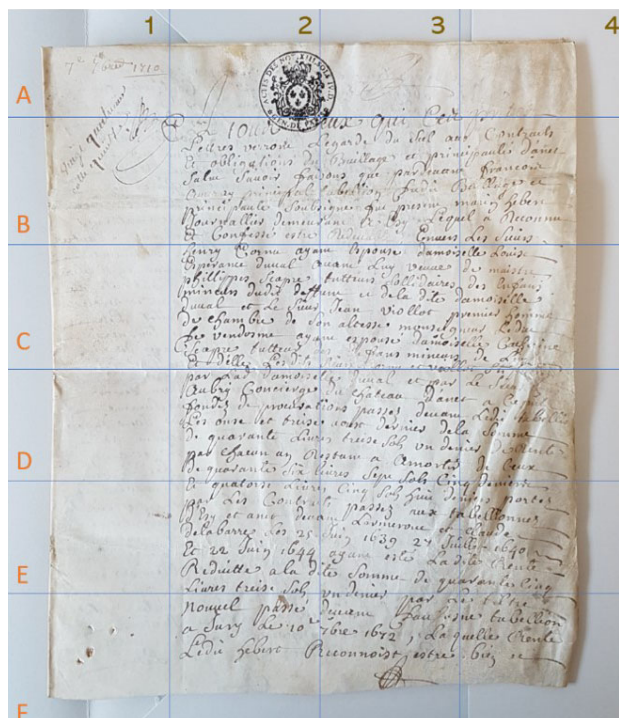 1 2 3 4
A
7e 9bre 1710
ACTES DES NOT
GEN. DE
B
A Tous Ceux qui Ces
Lettres verront Le garde du Scel aux Contracts
Et obligations du Bailliage et principauté danet
Salut Savoir faisons que pardevant francois
principal tabellion Juré Bailliage et
principauté soubsigné fut present marin hebert
demeurant a Lequel a Reconnu
Et Confessé estre Envers Les Sieurs
henry Cornu ayant Espousé damoiselle Louise
Esperance duval avant Luy veuve de maistre
phillippes Scapre tutteurs sollidaires des Enfans
mineurs dudit deffunt et de la dite damoiselle
duval et Le Sieur Jean Viollot premier homme
C
de chambre de son altesse monseigneur Le duc
de vendosme ayant espousé damoiselle Catherine
Scapre tutteur des Enfans mineurs de
par La damoiselle duval et par Le Sieur
Aubry Concierge du chateau danet a
fondez de procurations passez devant Ledit tabellion
Les onze et treize aoust derniers de la Somme
de quarante Livres treize Sols un denier de Rente
D
par chacun an Restant a Amortir de Ceux
de quarante Six livres Sept Sols Cinq deniers
Et quatorze Livres Cinq Sols huit deniers portez
par Les Contrats passez aux tabellionnez
et anet devant et Claude
delabarre Les 25 Juin 1639 27 Juillet 1640
Et 22 Juin 1644 ayant esté La dite Rente
E
Reduitte a la dite Somme de quarante Cinq
Livres treize Sols un denier par le tiltre
nouvel passé devant tabellion
a Ivry Le 10e 9bre 1672, La quelle Rente
Ledit hebert Reconnoist estre bien et
F